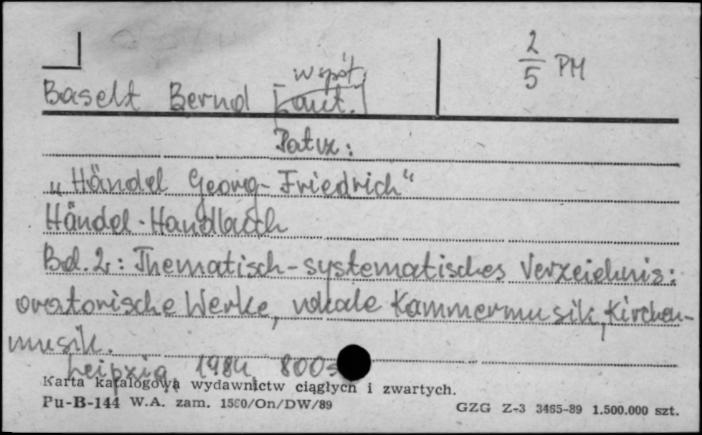 2/5 PM
współ.
Baselt Bernd [aut.]
Patrz:
„Händel Georg-Friedrich“
Händel-Handbuch
Bd. 2: Thematisch-systematisches Verzeichnis:
oratorische Werke, vokale Kammermusik, Kirchen-
musik.
Leipzig 1984 800s
Karta katalogowa wydawnictw ciągłych i zwartych.
Pu-B-144 W.A. zam. 1560/On/DW/89 GZG Z-3 3465-89 1.500.000 szt.